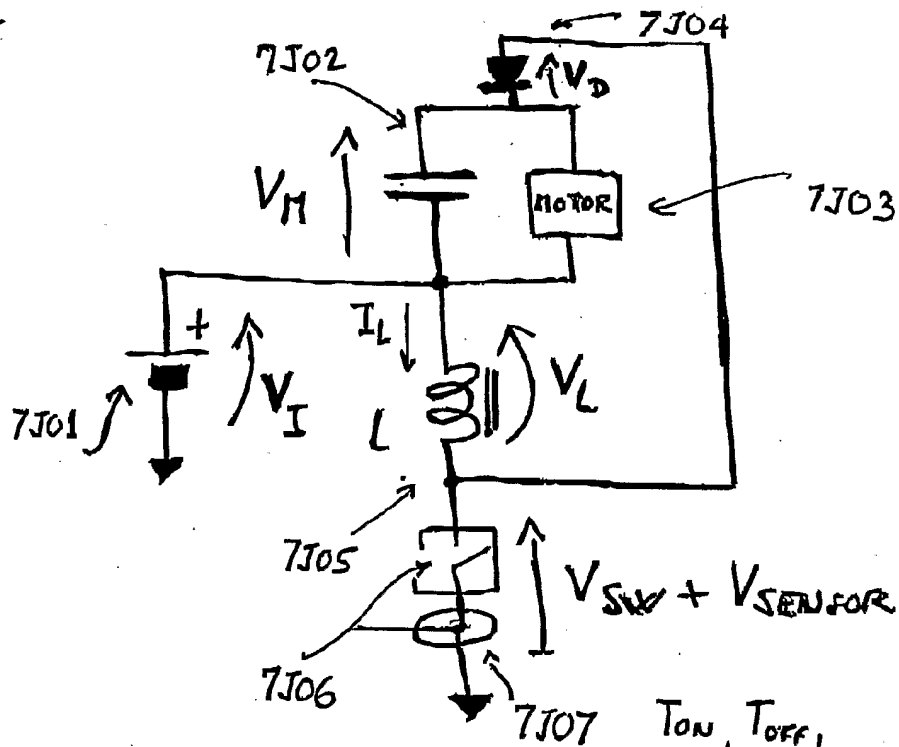 7J04
7J02
V_D
V_M
MOTOR
7J03
+
I_L
V_I
V_L
7J01
L
7J05
V_SW + V_SENSOR
7J06
7J07
T_ON, T_OFF,